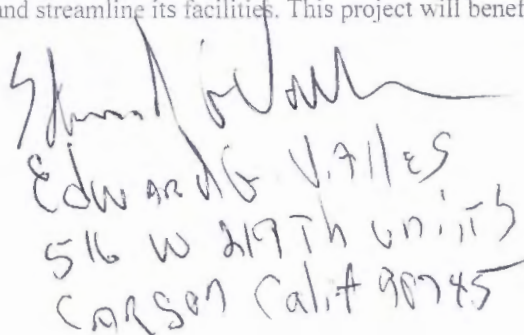 and streamline its facilities. This project will benef
Edward G V.
516 W 219Th unit 5
CARSON Calif 90745